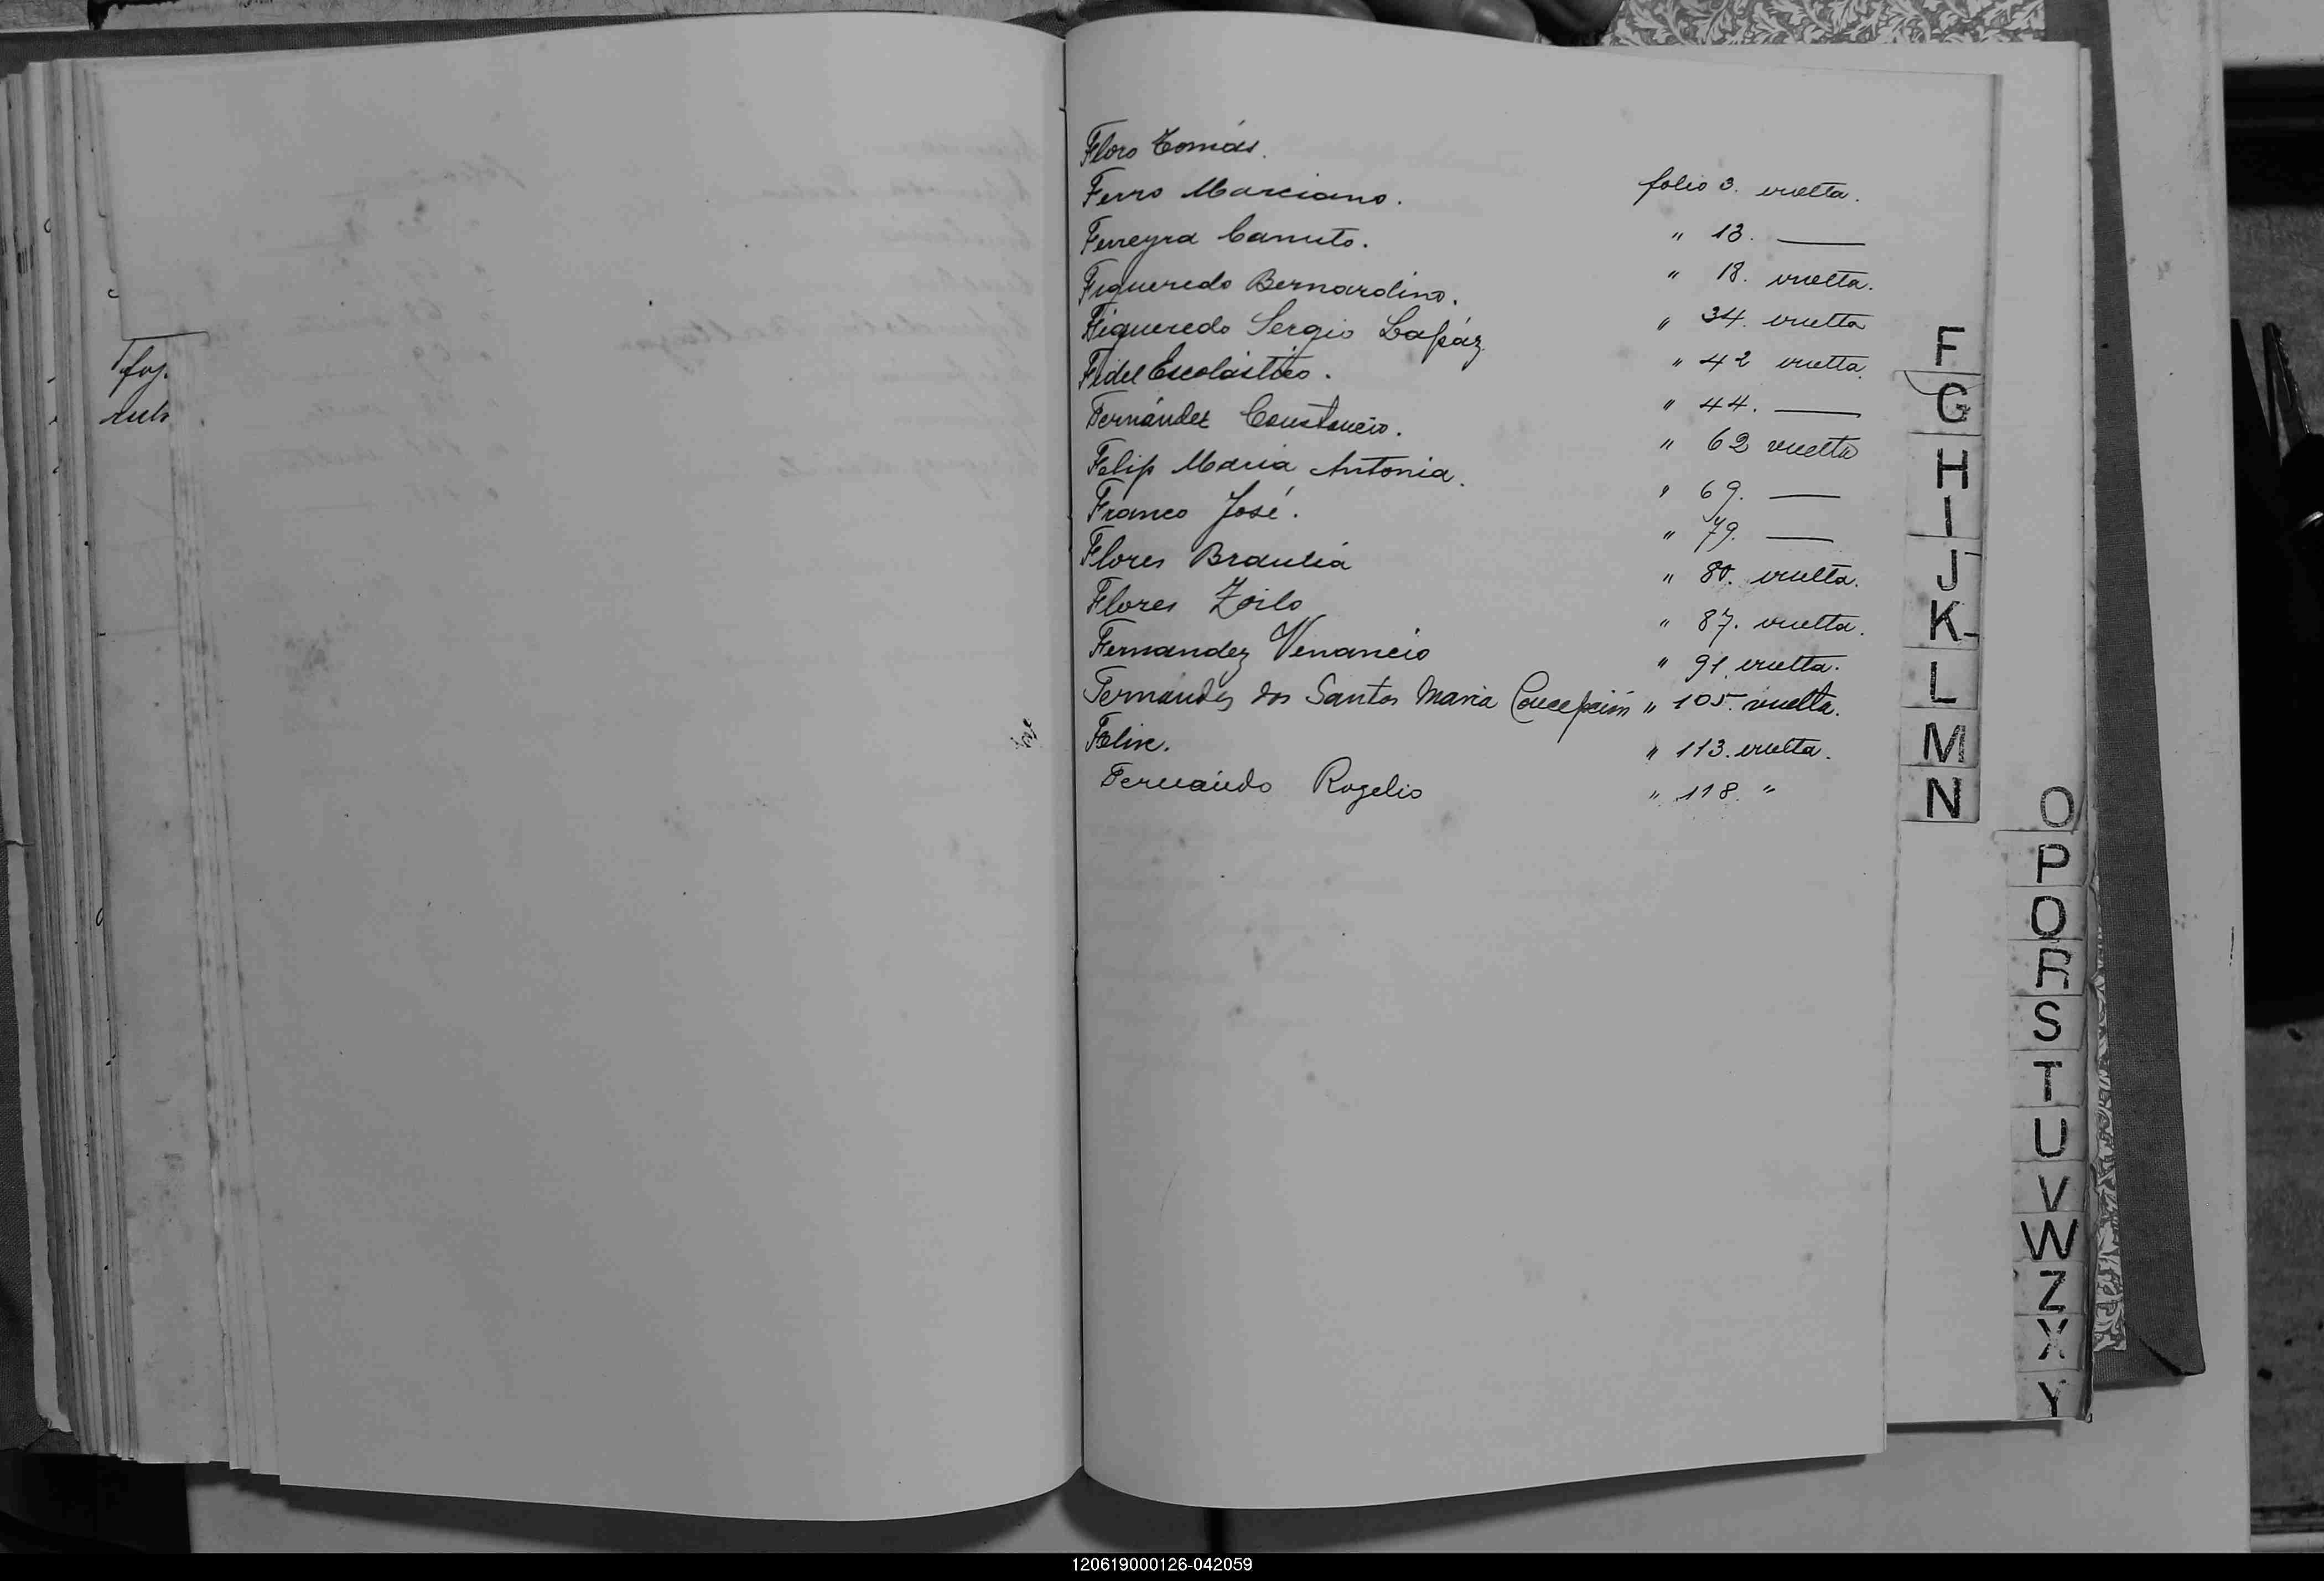 foj.
Floro Tomás. folio 3. vuelta.
Ferro Marciano. " 13. —
Ferreyra Canuto. " 18. vuelta.
Figueredo Bernardino. " 34. vuelta
Figueredo Sergio Lapáz " 42 vuelta.
Fidel Escolástico. " 44. —
Fernández Constancio. " 62 vuelta
Felip Maria Antonia. " 69. —
Franco José. " 79. —
Flores Braulia " 80. vuelta.
Flores Zoilo " 87. vuelta.
Fernandez Venancio " 91. vuelta.
Fernándes dos Santos Maria Concepción " 105. vuelta.
Felix. " 113. vuelta.
Fernándo Rogelio " 118. "
F
G
H
I
J
K
L
M
N
O
P
Q
R
S
T
U
V
W
Z
X
Y
120619000126-042059